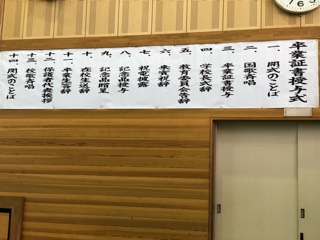 卒業証書授与式
一、開式のことば
二、国歌斉唱
三、卒業証書授与
四、学校長式辞
五、教育委員会告辞
六、来賓祝辞
七、祝電披露
八、記念品授与
九、記念品贈呈
十、在校生送辞
十一、卒業生答辞
十二、保護者代表挨拶
十三、校歌斉唱
十四、閉式のことば